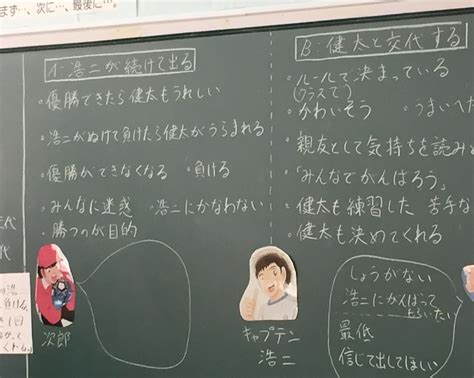 まず…、次に…、最後に…。
A:浩二が続けて出る
・優勝できたら健太もうれしい
・浩二がぬけて負けたら健太がうらまれる
・優勝ができなくなる 負ける
・みんなに迷惑 ・浩二にかなわない
・勝つのが目的
次郎
キャプテン
浩二
B:健太と交代する
・ルールで決まっている
(クラスで)
・かわいそう
・親友として気持ちを読み
・「みんなでがんばろう」
・健太も練習した 苦手な
・健太も決めてくれる
しょうがない
浩二にがんばって
もらいたい
最低
信じて出してほしい